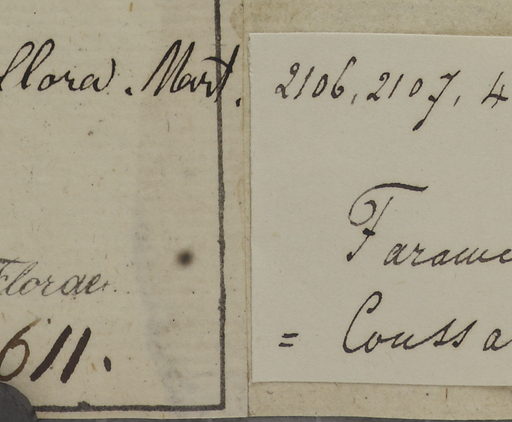 llora. Mart.
Florae
611.
2106, 2107, 4
Farame
= Coussa